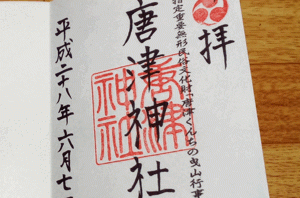 拝
指定重要無形民俗文化財 唐津くんちの曳山行事
唐津神社
唐津
神社
平成二八年六月七日